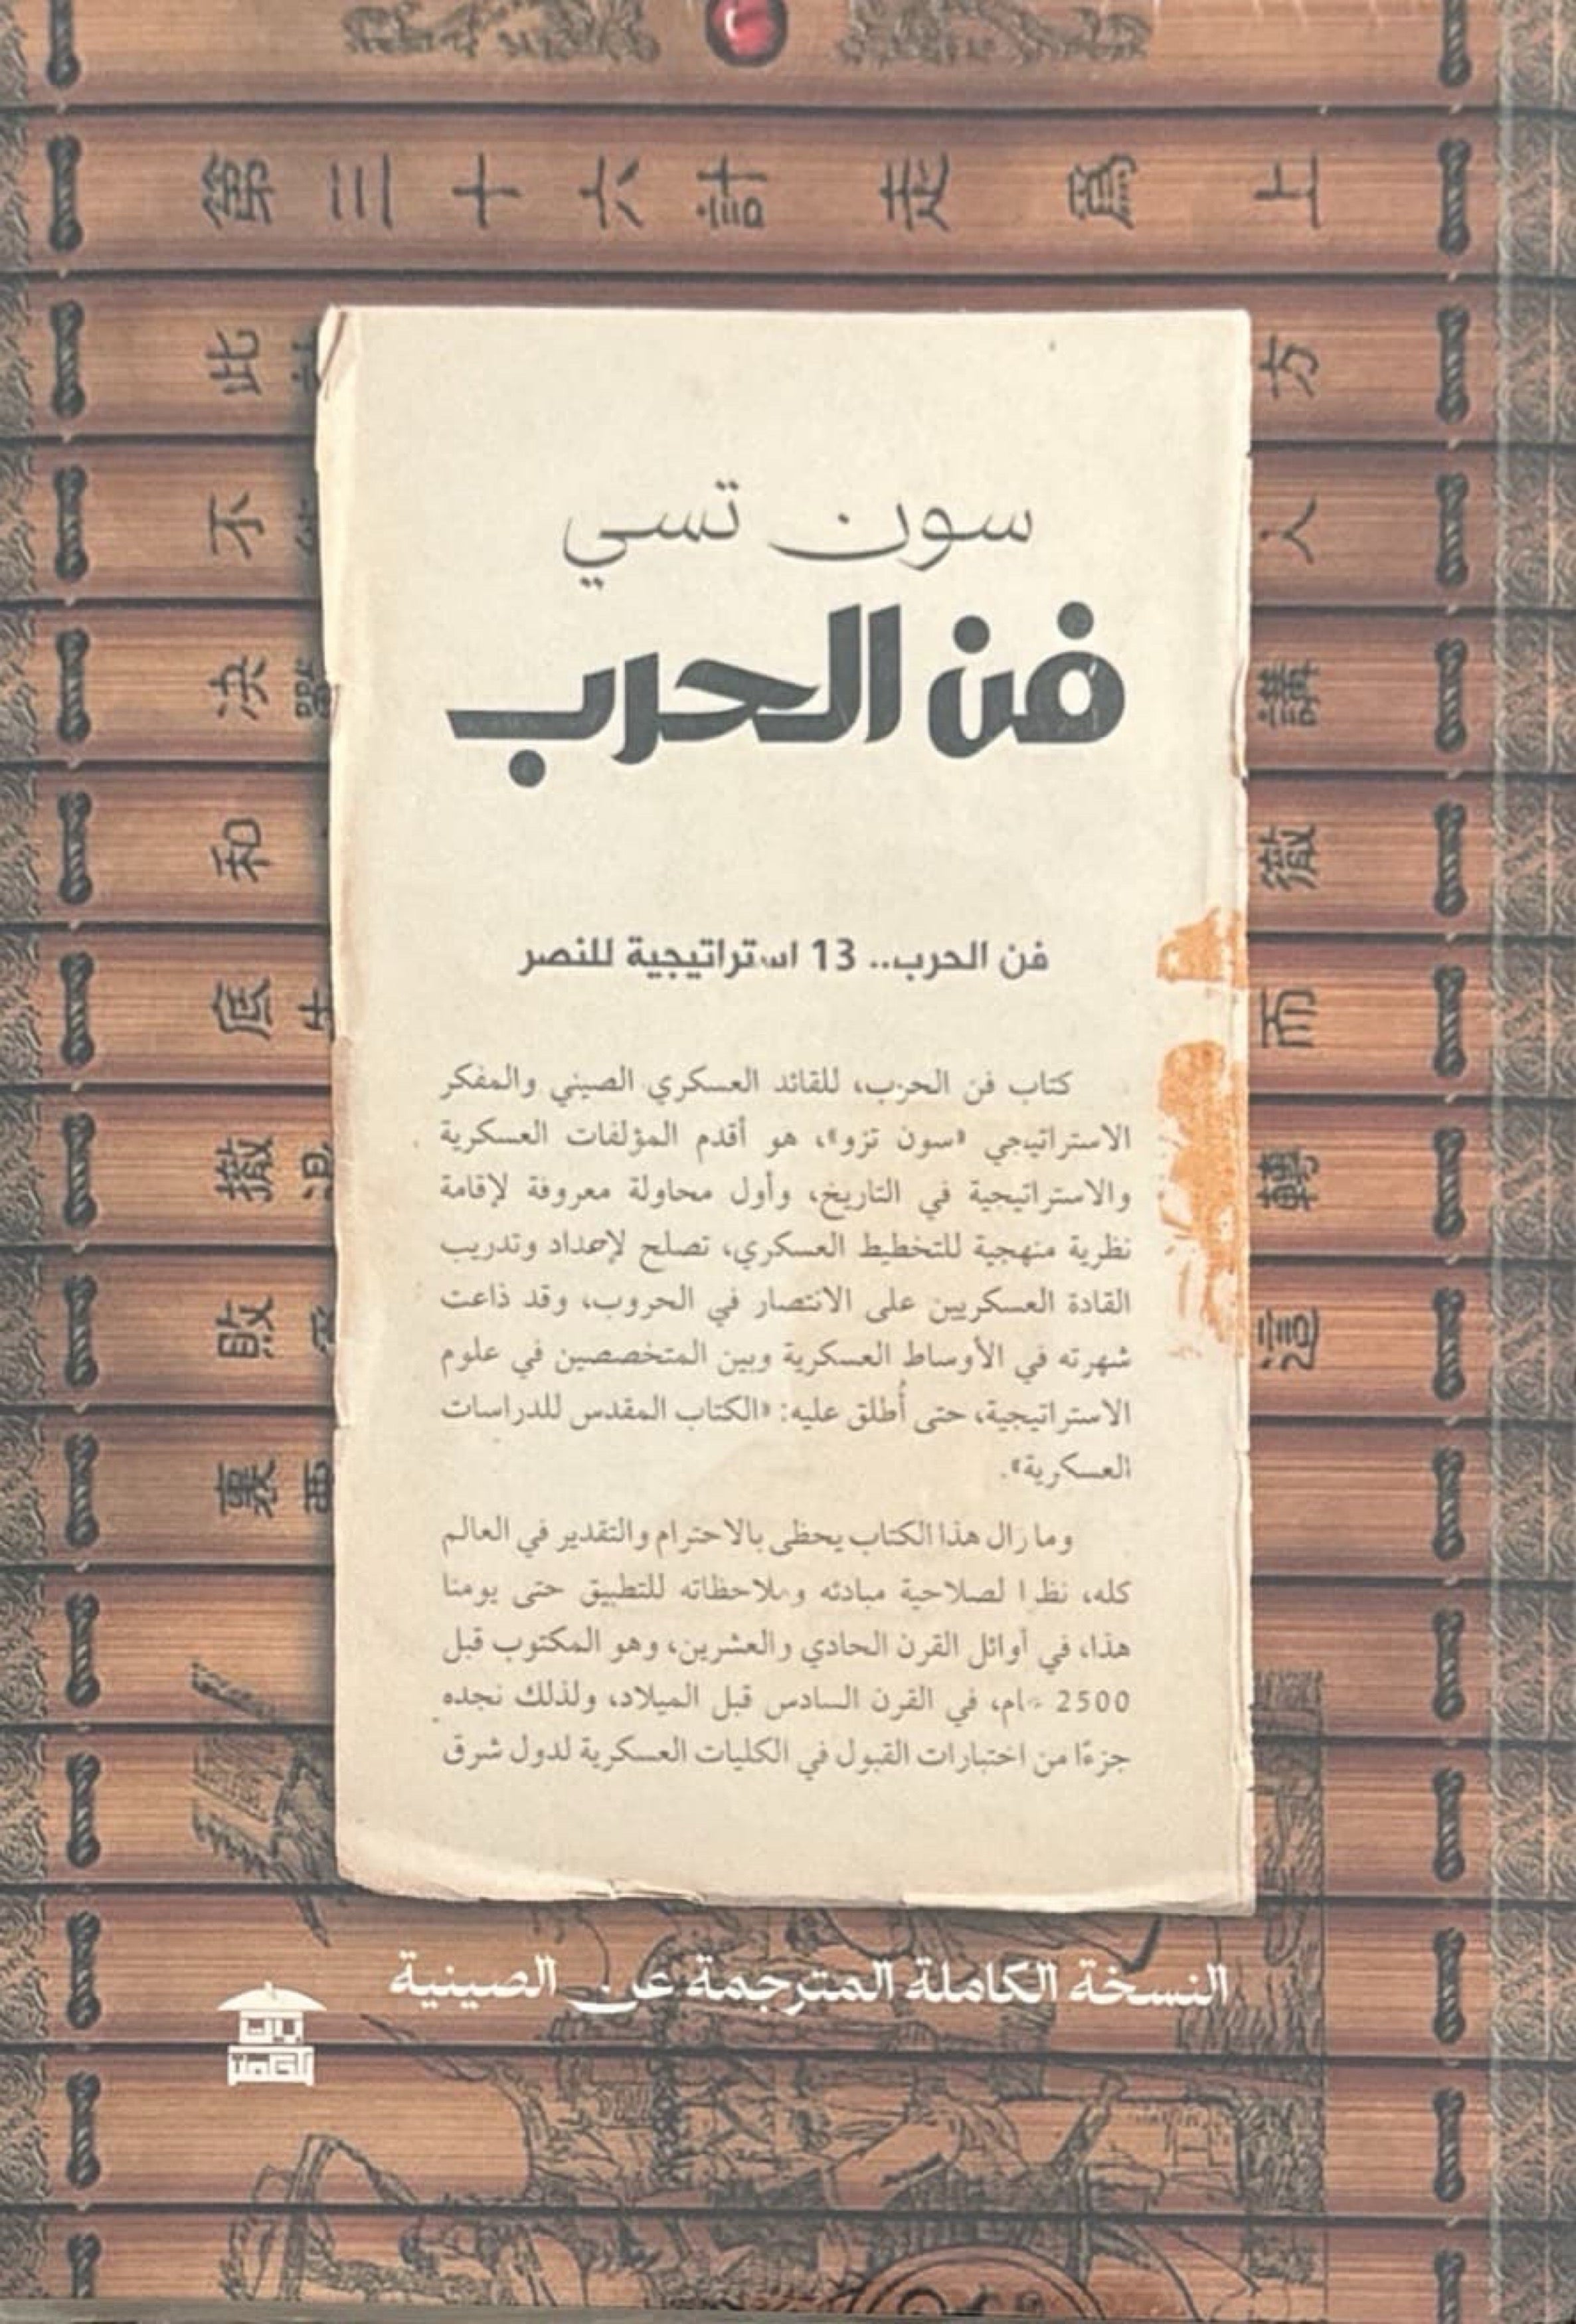 第三十六計 走爲上
سون تسي
فن الحرب
فن الحرب.. 13 استراتيجية للنصر
كتاب فن الحرب، للقائد العسكري الصيني والمفكر
الاستراتيجي «سون تزو»، هو أقدم المؤلفات العسكرية
والاستراتيجية في التاريخ، وأول محاولة معروفة لإقامة
نظرية منهجية للتخطيط العسكري، تصلح لإعداد وتدريب
القادة العسكريين على الانتصار في الحروب، وقد ذاعت
شهرته في الأوساط العسكرية وبين المتخصصين في علوم
الاستراتيجية، حتى أُطلق عليه: «الكتاب المقدس للدراسات
العسكرية».
وما زال هذا الكتاب يحظى بالاحترام والتقدير في العالم
كله، نظرا لصلاحية مبادئه وملاحظاته للتطبيق حتى يومنا
هذا، في أوائل القرن الحادي والعشرين، وهو المكتوب قبل
2500 عام، في القرن السادس قبل الميلاد، ولذلك نجده
جزءًا من اختبارات القبول في الكليات العسكرية لدول شرق
此
方
不
人
决
講
和
徹
底
而
撤
轉
敗
這
裏
النسخة الكاملة المترجمة عن الصينية
بيت
الحكمة